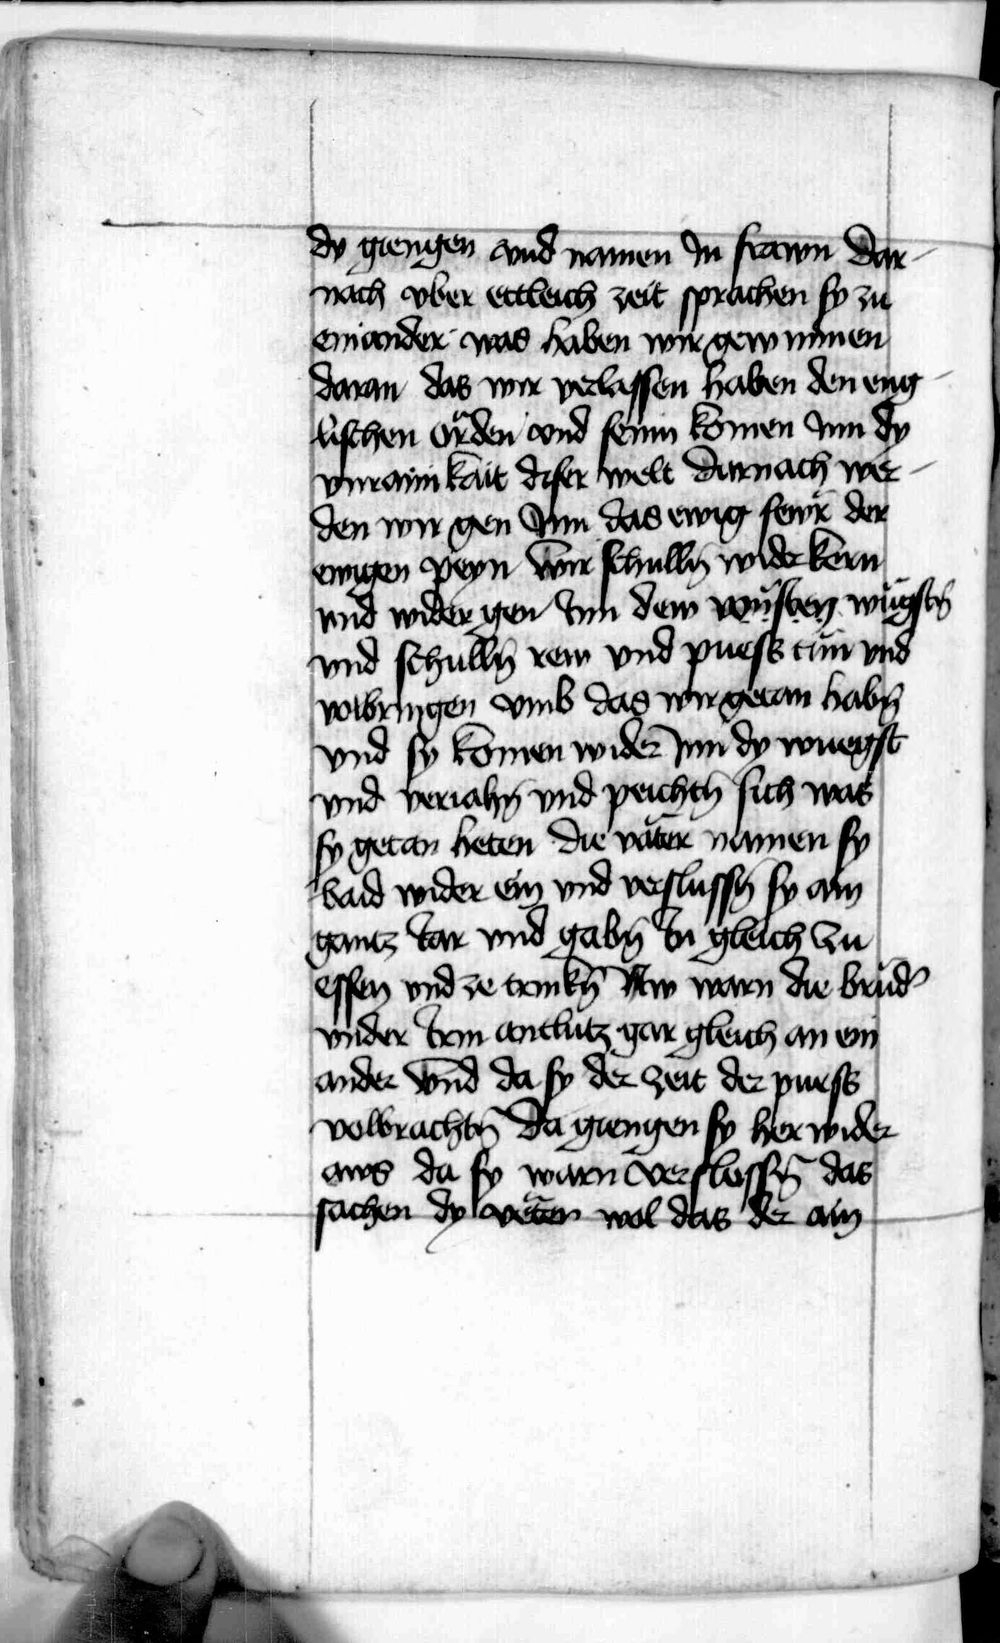 dy giengen vnd namen In frawn Dar-
nach vber ettleich zeit sprachen sy zu
einander was haben wir gewunnen
daran das wir verlassen haben den eng-
lischen Orden vnd seinn komen Inn dy
vnrainikait diser welt Darnach wer-
den wir gen Inn das ewig fewr der
ewigen peyn Wir schulln̄ wider kern
vnd wider gen Inn dem wüsten wügstn̄
vnd schulln̄ rew vnd puess tün vnd
volbringen vmb das wir getan habn̄
vnd sy komen wider Inn dy wuegst
vnd veriahn̄ vnd peichtn̄ sich was
sy getan heten Die väter namen sy
baid wider ein vnd verslussn̄ sy ain
gantz Iar vnd gabn̄ In gleich Zu
essen vnd ze trinkn̄ Nw warn die brüdᵉ
vnder Irm antlütz gar gleich an ein
ander Vnd da sy der zeit der puess
volbrachtn̄ Da giengen sy her wider
aws da sy warn verslossn̄ das
sachen dy veter wol das der ain